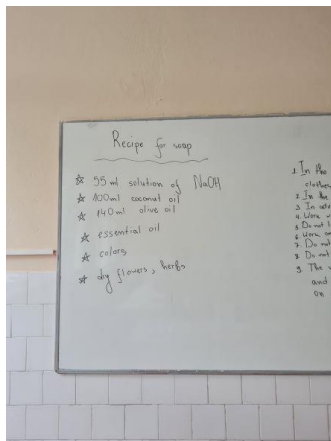 Recipe for soap
☆ 55 ml solution of NaOH
☆ 100ml coconut oil
☆ 140ml olive oil
☆ essential oil
☆ colors
☆ dry flowers, herbs
1. In the
clothes
2. In the
3. In
4. Work
5. Do not
6. Work
7. Do not
8. Do not
9. The
and
on